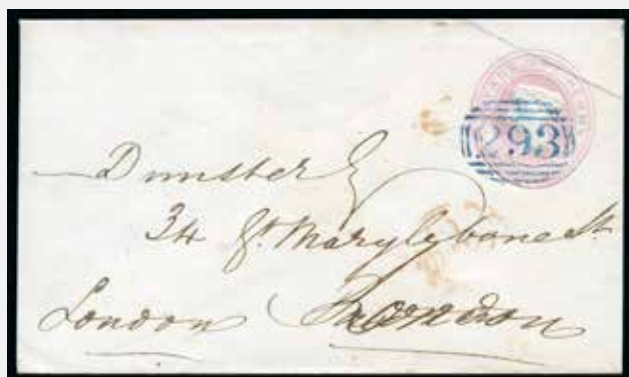 293
Dunster Esq
34 Gt. Marylybone St.
London London